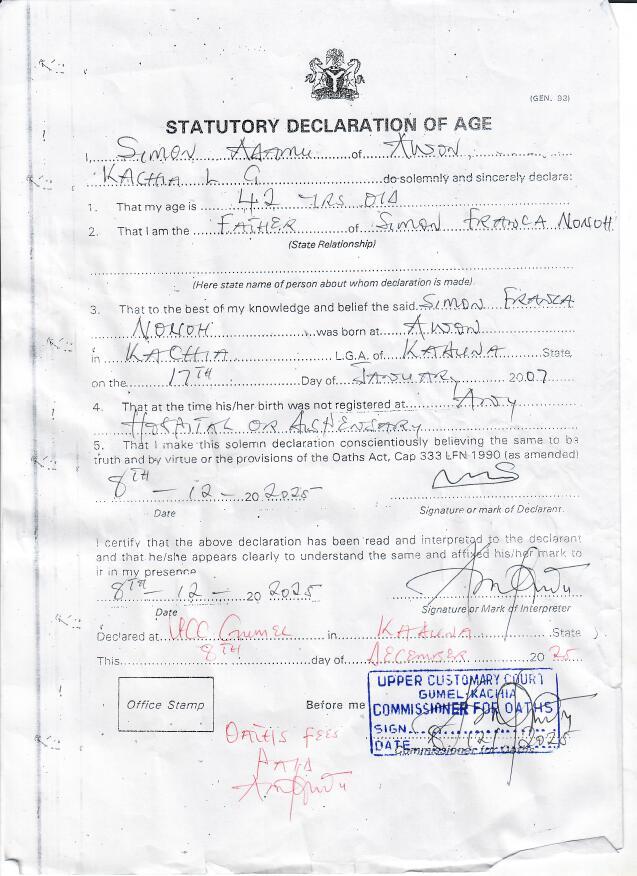 (GEN. 93)
STATUTORY DECLARATION OF AGE
I, SIMON ADAMU of AWON,
KACHIA L G do solemnly and sincerely declare:
1. That my age is 42 YRS OLD
2. That I am the FATHER of SIMON FRANCA NONOH
(State Relationship)
(Here state name of person about whom declaration is made)
3. That to the best of my knowledge and belief the said SIMON FRANCA
NONOH was born at AWON
in KACHIA L.G.A. of KADUNA State
on the 17TH Day of JANUARY 2007
4. That at the time his/her birth was not registered at ANY
HOSPITAL OR DISPENSARY
5. That I make this solemn declaration conscientiously believing the same to be
truth and by virtue or the provisions of the Oaths Act, Cap 333 LFN 1990 (as amended)
8TH - 12 - 20 2025
Date Signature or mark of Declarant.
I certify that the above declaration has been read and interpreted to the declarant
and that he/she appears clearly to understand the same and affixed his/her mark to
it in my presence
8TH - 12 - 20 2025
Date Signature or Mark of Interpreter
Declared at UCC GUMEL in KADUNA State
This 8TH day of DECEMBER 20 25
Office Stamp Before me
UPPER CUSTOMARY COURT
GUMEL-KACHIA
COMMISSIONER FOR OATHS
SIGN
DATE 8/12/2025
Commissioner for Oaths
OATHS FEES
PAID